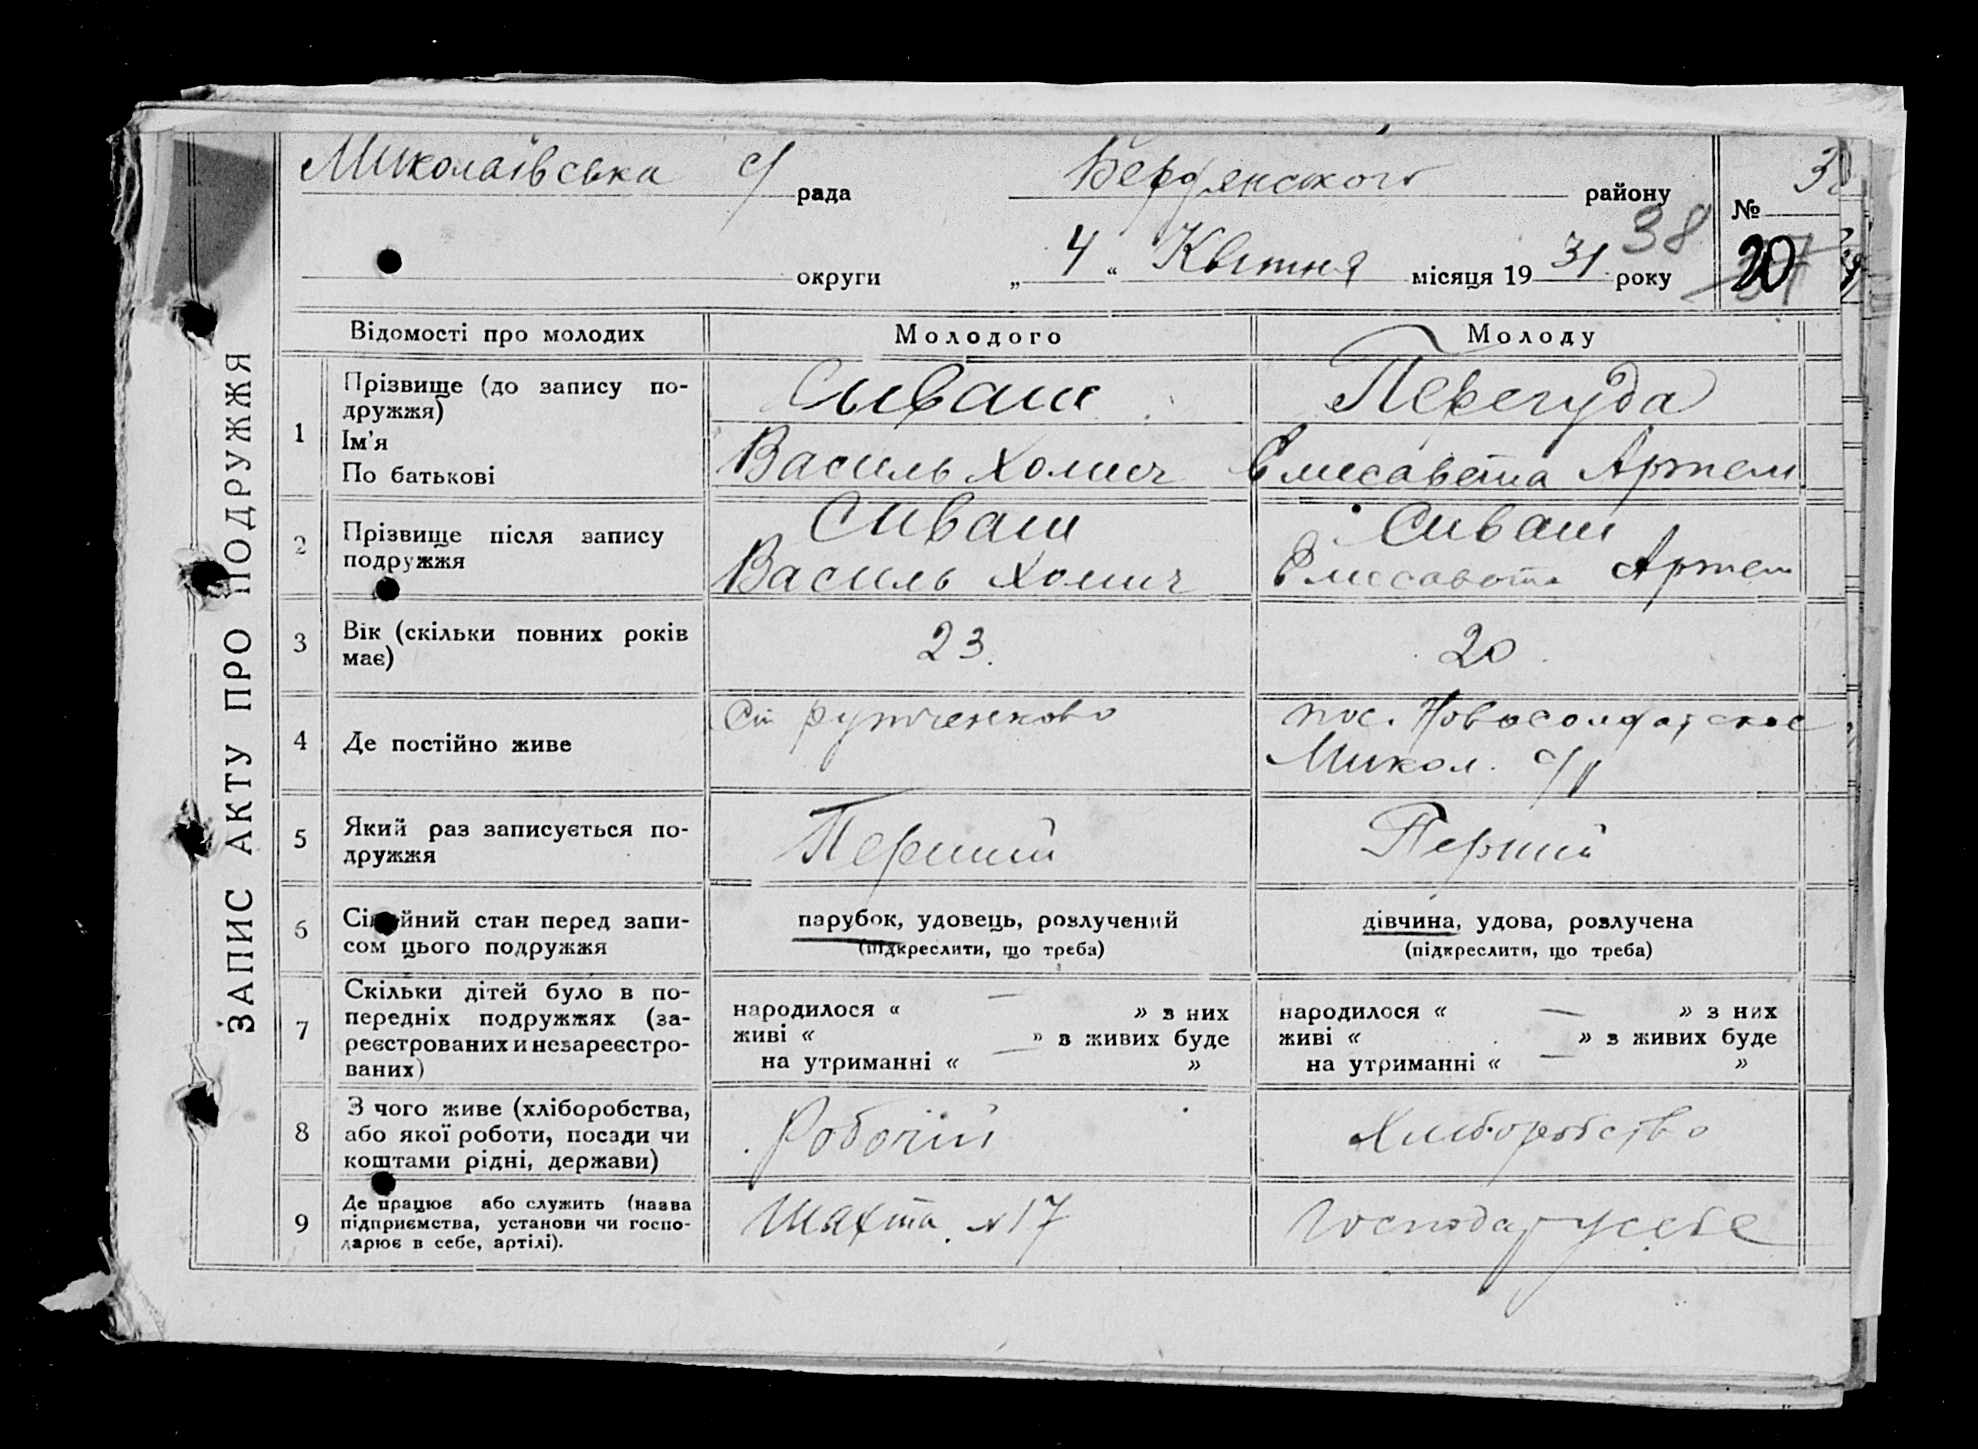 ЗАПИС АКТУ ПРО ПОДРУЖЖЯ
Миколаівська с/ рада Бердянського району №
округи „ 4 “ Квітня місяця 19 31 року 38 20
Відомості про молодих Молодого Молоду
1 Прізвище (до запису по-
дружжя)
Ім'я
По батькові
Сываш
Василь Хомич
Перегуда
Єлисавета Артем
2 Прізвище після запису
подружжя
Сиваш
Василь Хомич
Сиваш
Єлисавета Артем
3 Вік (скільки повних років
має)
23.
20
4 Де постійно живе
Ст Рутченково
пос. Новосолдатское
Микол. с/р
5 Який раз записується по-
дружжя
Перший
Перший
6 Сімейний стан перед запи-
сом цього подружжя
парубок, удовець, розлучений
(підкреслити, що треба)
дівчина, удова, розлучена
(підкреслити, що треба)
7 Скільки дітей було в по-
передніх подружжях (за-
реєстрованих и незареєстро-
ваних)
народилося “ — ” з них
живі “ ” з живих буде
на утриманні “ — ”
народилося “ — ” з них
живі “ ” з живих буде
на утриманні “ — ”
8 З чого живе (хліборобства,
або якої роботи, посади чи
коштами рідні, держави)
Робочій
Хлиборобство
9 Де працює або служить (назва
підприємства, установи чи госпо-
дарює в себе, артілі).
Шахта №17
Господарує у себе